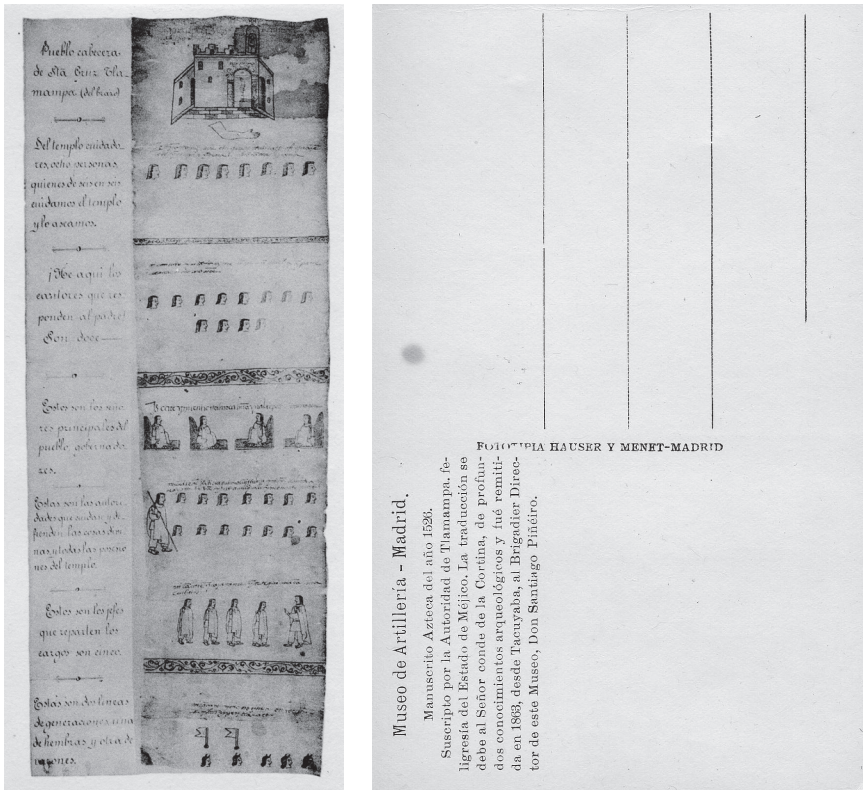 Pueblo cabecera
de Sta Cruz Tla-
mampa (del brazo)
Del templo cuidado-
res, ocho personas,
quienes de seis en seis
cuidamos el templo
y lo aseamos.
¡He aquí los
cantores que res-
ponden al padre!
Son doce
Estos son los seño-
res principales del
pueblo, gobernado-
res.
Estas son las autori-
dades que cuidan y de-
fienden las cosas divi-
nas, y todas las posesio-
nes del templo.
Estos son los jefes
que reparten los
cargos son cinco.
Estas son dos lineas
de generaciones, una
de hembras y otra de
varones.
FOTOTIPIA HAUSER Y MENET-MADRID
Museo de Artillería - Madrid.
Manuscrito Azteca del año 1526.
Suscripto por la Autoridad de Tlamampa, fe-
ligresía del Estado de Méjico. La traducción se
debe al Señor conde de la Cortina, de profun-
dos conocimientos arqueológicos y fué remiti-
da en 1863, desde Tacuyaba, al Brigadier Direc-
tor de este Museo, Don Santiago Piñéiro.